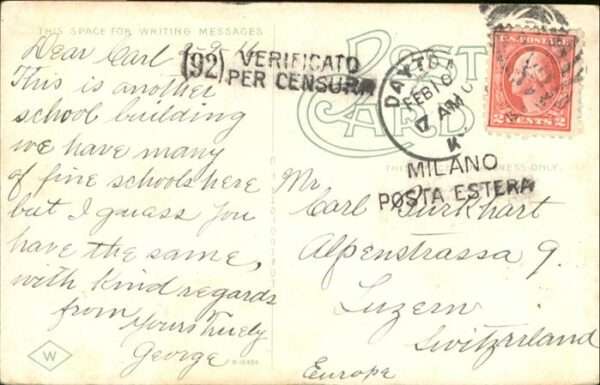 THIS SPACE FOR WRITING MESSAGES
Dear Carl
This is another
school building
we have many
of fine schools here
but I guass you
have the same,
with kind regards
from
Yours Truely
George
W
(92) VERIFICATO
PER CENSURA
POST
CARD
DAYTON
FEB 10
7 AM
K.
U.S. POSTAGE
2 CENTS 2
MILANO
POSTA ESTERA
Mr
Carl Burkhart
Alpenstrassa 9.
Luzern
Switzirland
Europe